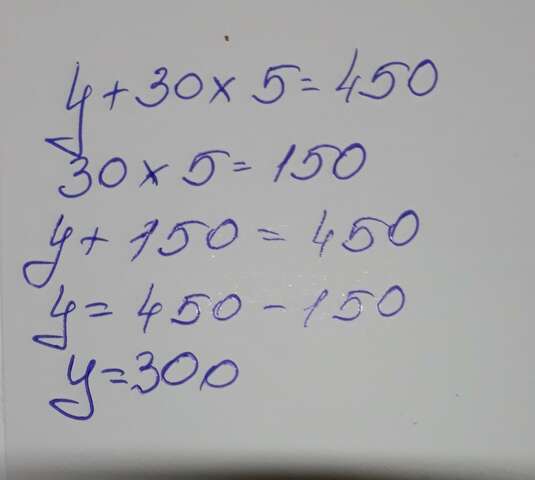 y+30×5=450
30×5=150
y+150=450
y=450-150
y=300